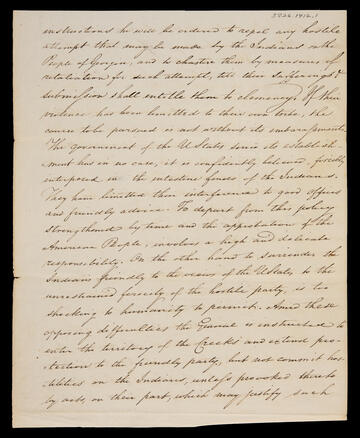 3826.1916.1
instructions he will be ordered to repel any hostile
attempt that may be made by the Indians on the
People of Georgia, and to chastise them by measures of
retaliation for such attempt, till their sufferings &
submission shall entitle them to clemency. If their
violence has been limitted to their own tribe, the
course to be pursued is not without its embarrassments.
The government of the U States since its establish-
ment has in no case, it is confidently believed, forcibly
interposed in the intestine feuds of the Indians.
They have limitted their interference to good offices
and friendly advice. To depart from this policy
strengthened by time and the approbation of the
American People, involves a high and delicate
responsibility. On the other hand to surrender the
Indians friendly to the views of the U States, to the
unrestrained ferocity of the hostile party, is too
shocking to humanity to permit. Amid these
opposing difficulties the General is instructed to
enter the territory of the Creeks and extend pro-
tection to the friendly party, but not commit hos-
tilities on the Indians, unless provoked thereto
by acts, on their part, which may justify such